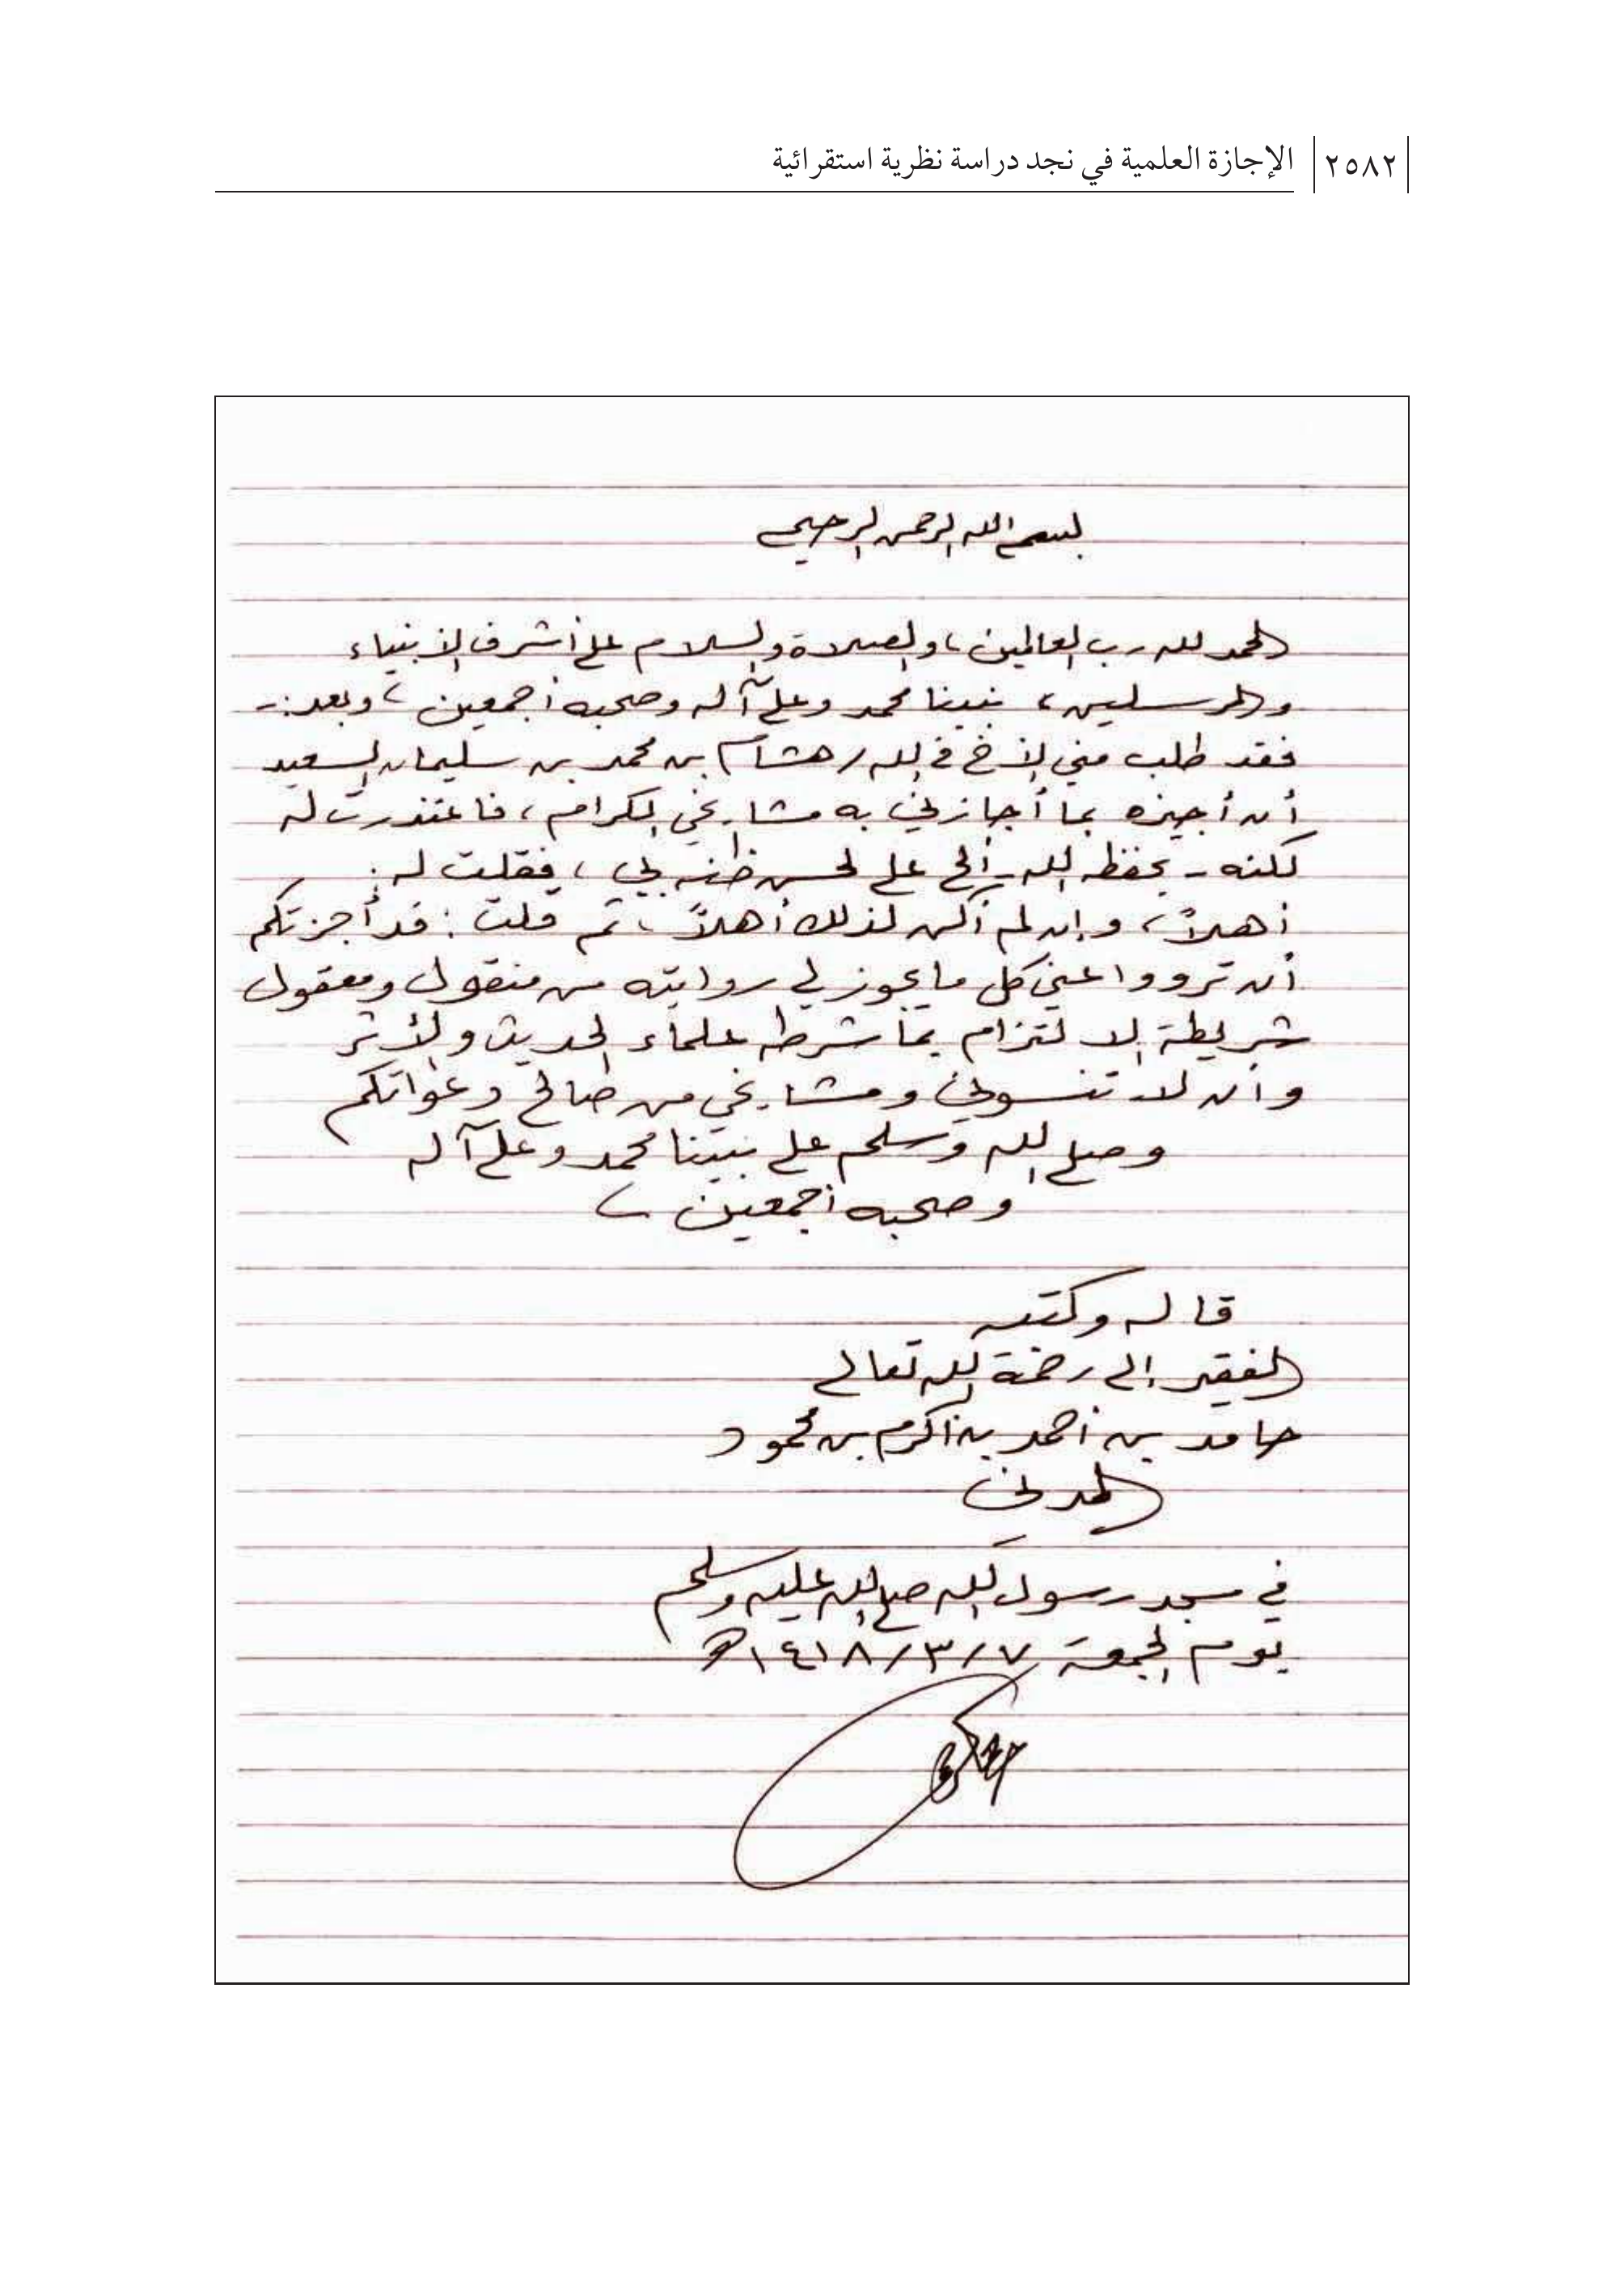 ٢٥٨٢ الإجازة العلمية في نجد دراسة نظرية استقرائية
بسم الله الرحمن الرحيم
الحمد لله رب العالمين، والصلاة والسلام على أشرف الأنبياء
والمرسلين، نبينا محمد وعلى آله وصحبه أجمعين، وبعد:-
فقد طلب مني الأخ في الله / هشام بن محمد بن سليمان السعيد
أن أجيزه بما أجازني به مشايخي الكرام، فاعتذرت له
لكنه - يحفظه الله - ألح علي لحسن ظنه بي، فقلت له:
أهلاً، وإن لم أكن لذلك أهلاً، ثم قلت: قد أجزتكم
أن ترووا عني كل ما يجوز لي روايته من منقول ومعقول
شريطة الالتزام بما شرطه علماء الحديث والأثر
وأن لا تنسوني ومشايخي من صالح دعواتكم
وصلى الله وسلم على نبينا محمد وعلى آله
وصحبه أجمعين
قاله وكتبه
الفقير إلى رحمة الله تعالى
حامد بن أحمد بن أكرم بن محمود
المدني
في مسجد رسول الله صلى الله عليه وسلم
يوم الجمعة ٧/٣/١٤١٨هـ